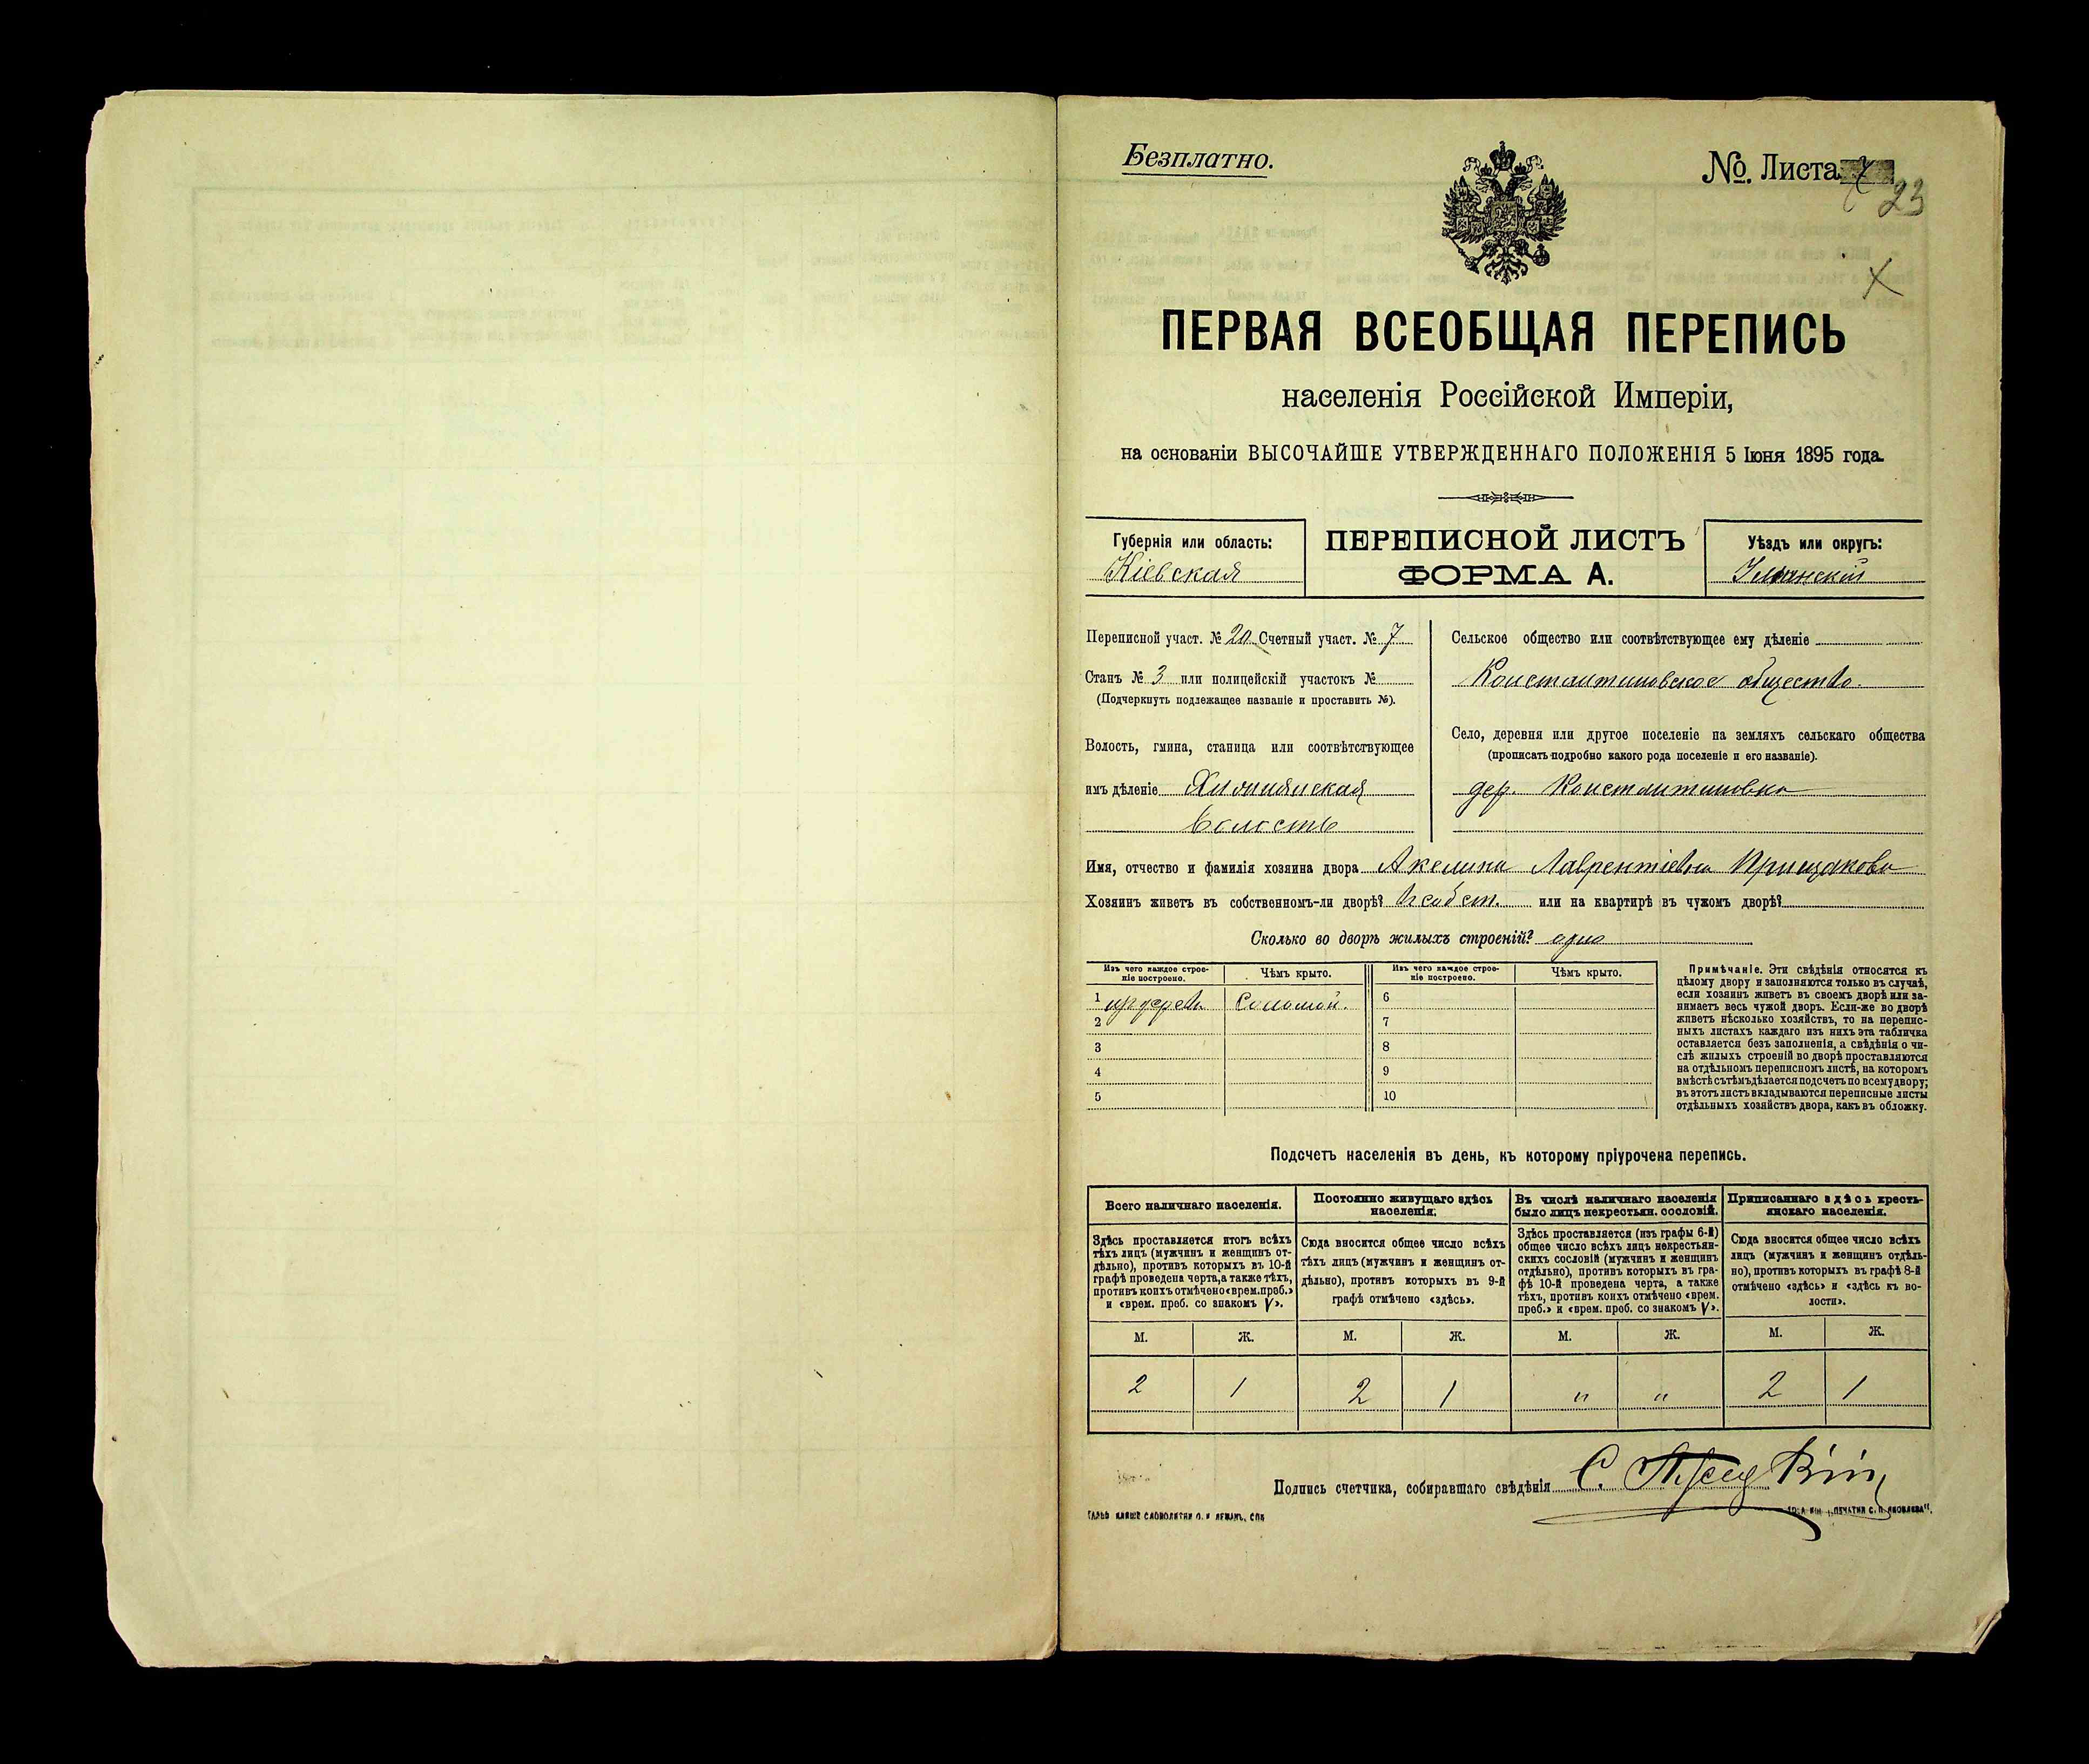 Безплатно.
№. Листа 7
23
ПЕРВАЯ ВСЕОБЩАЯ ПЕРЕПИСЬ
населенія Россійской Имперіи,
на основаніи ВЫСОЧАЙШЕ УТВЕРЖДЕННАГО ПОЛОЖЕНІЯ 5 Іюня 1895 года.
Губернія или область:
Кіевская
ПЕРЕПИСНОЙ ЛИСТЪ
ФОРМА А.
Уѣздъ или округъ:
Уманскій
Переписной участ. № 20 Счетный участ. № 7
Станъ № 3 или полицейскій участокъ №
(Подчеркнуть подлежащее названіе и проставить №).
Волость, гмина, станица или соотвѣтствующее
имъ дѣленіе
волость
Сельское общество или соотвѣтствующее ему дѣленіе
Константиновское общество.
Село, деревня или другое поселеніе на земляхъ сельскаго общества
(прописать подробно какого рода поселеніе и его названіе).
дер. Константиновка
Имя, отчество и фамилія хозяина двора Акелина Лаврентіевна Прищакова
Хозяинъ живетъ въ собственномъ-ли дворѣ? или на квартирѣ въ чужомъ дворѣ?
Сколько во дворѣ жилыхъ строеній? одно
Изъ чего каждое строе-
ніе построено.
Чѣмъ крыто.
Изъ чего каждое строе-
ніе построено.
Чѣмъ крыто.
1 изъ дерева Соломой. 6
2 7
3 8
4 9
5 10
Примѣчаніе. Эти свѣдѣнія относятся къ
цѣлому двору и заполняются только въ случаѣ,
если хозяинъ живетъ въ своемъ дворѣ или за-
нимаетъ весь чужой дворъ. Если-же во дворѣ
живетъ нѣсколько хозяйствъ, то на перепис-
ныхъ листахъ каждаго изъ нихъ эта табличка
оставляется безъ заполненія, а свѣдѣнія о чи-
слѣ жилыхъ строеній во дворѣ проставляются
на отдѣльномъ переписномъ листѣ, на которомъ
вмѣстѣ съ тѣмъ дѣлается подсчетъ по всему двору;
въ этотъ листъ вкладываются переписные листы
отдѣльныхъ хозяйствъ двора, какъ въ обложку.
Подсчетъ населенія въ день, къ которому пріурочена перепись.
Всего наличнаго населенія.
Здѣсь проставляется итогъ всѣхъ
тѣхъ лицъ (мужчинъ и женщинъ от-
дѣльно), противъ которыхъ въ 10-й
графѣ проведена черта, а также тѣхъ,
противъ коихъ отмѣчено «врем. преб.»
и «врем. преб. со знакомъ V».
Постоянно живущаго здѣсь
населенія.
Сюда вносится общее число всѣхъ
тѣхъ лицъ (мужчинъ и женщинъ от-
дѣльно), противъ которыхъ въ 9-й
графѣ отмѣчено «здѣсь».
Въ числѣ наличнаго населенія
было лицъ некрестьян. сословій.
Здѣсь проставляется (изъ графы 6-й)
общее число всѣхъ лицъ некрестьян-
скихъ сословій (мужчинъ и женщинъ
отдѣльно), противъ которыхъ въ гра-
фѣ 10-й проведена черта, а также
тѣхъ, противъ коихъ отмѣчено «врем.
преб.» и «врем. преб. со знакомъ V».
Приписаннаго здѣсь кресть-
янскаго населенія.
Сюда вносится общее число всѣхъ
лицъ (мужчинъ и женщинъ отдѣль-
но), противъ которыхъ въ графѣ 8-й
отмѣчено «здѣсь» и «здѣсь къ во-
лости».
М. Ж. М. Ж. М. Ж. М. Ж.
2 1 2 1 " " 2 1
Подпись счетчика, собиравшаго свѣдѣнія С.